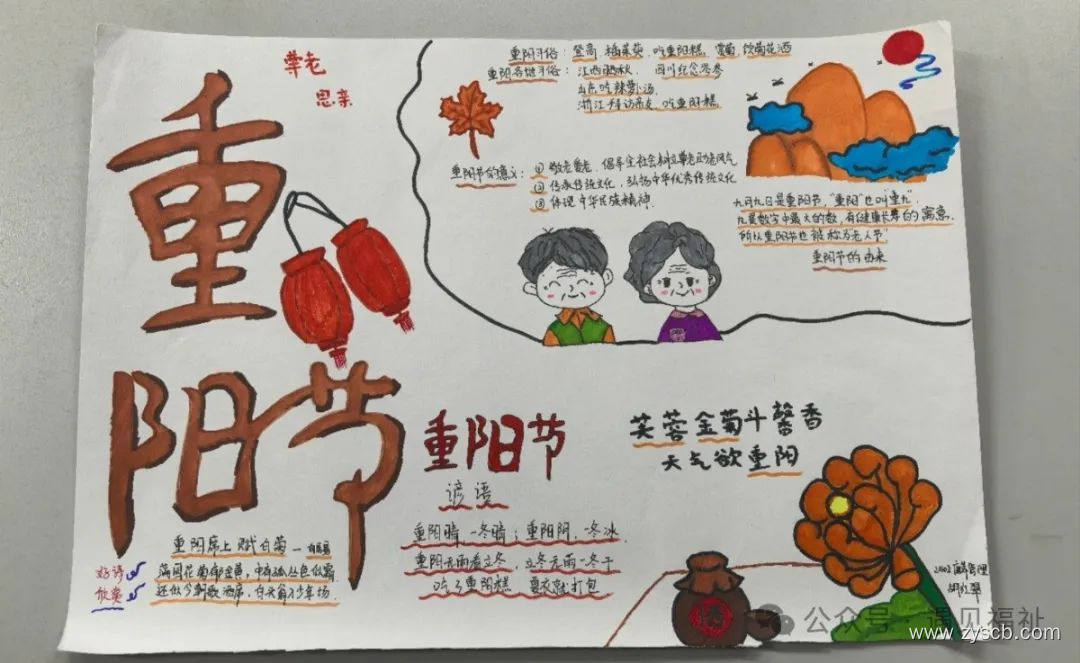 重阳节
尊老
思亲
重阳习俗：登高 插茱萸 吃重阳糕 赏菊 饮菊花酒
重阳各地习俗：江西晒秋、四川纪念
吃辣萝卜汤
浙江 吃重阳糕
重阳节的意义：①敬老爱老，倡导全社会树立尊老
②传承传统文化，弘扬中华优秀传统文化
③体现中华民族精神
九月九日是重阳节，"重阳"也叫重九
九是数字中最大的数，有健康长寿的寓意
所以重阳节也被称为老人节
重阳节的由来
重阳节
谚语
重阳晴，一冬晴；重阳阴，一冬冰
重阳无雨看立冬，立冬无雨一冬干
吃了重阳糕 夏衣就打包
芙蓉金菊斗馨香
天气欲重阳
好诗
欣赏
重阳席上赋白菊—白居易
满园花菊郁金黄，中有孤丛色似霜
还似今朝歌酒席，白头翁入少年场
酒
公众号·遇见福祉
www.zyscb.com